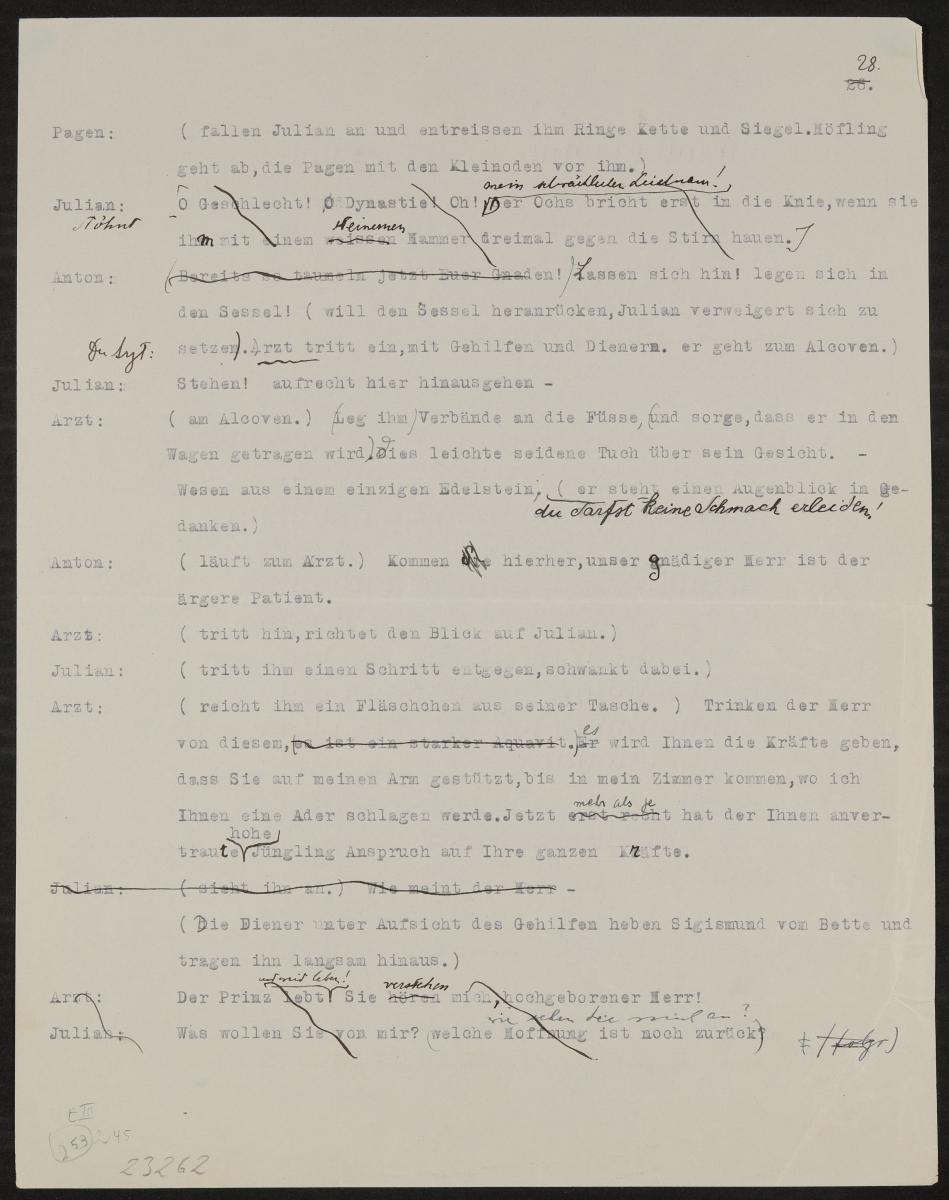 28.
26.
Pagen: ( fallen Julian an und entreissen ihm Ringe Kette und Siegel.Höfling
geht ab,die Pagen mit den Kleinoden vor ihm.)
mein schwächlicher Leichnam!
Julian: O Geschlecht! O Dynastie! Oh! Der Ochs bricht erst in die Knie,wenn sie
stöhnt
steinernen
ihm mit einem weissen Hammer dreimal gegen die Stirn hauen.]
Anton: (Bereits so taumeln jetzt Euer Gnaden!) Lassen sich hin! legen sich in
den Sessel! ( will den Sessel heranrücken,Julian verweigert sich zu
Der Arzt: setzen).Arzt tritt ein,mit Gehilfen und Dienern. er geht zum Alcoven.)
Julian: Stehen! aufrecht hier hinausgehen -
Arzt: ( am Alcoven.) (Leg ihm) Verbände an die Füsse, (und sorge,dass er in den
Wagen getragen wird). Dies leichte seidene Tuch über sein Gesicht. -
Wesen aus einem einzigen Edelstein. ( er steht einen Augenblick in Ge-
du darfst keine Schmach erleiden!
danken.)
Anton: ( läuft zum Arzt.) Kommen hierher,unser gnädiger Herr ist der
ärgere Patient.
Arzt: ( tritt hin,richtet den Blick auf Julian.)
Julian: ( tritt ihm einen Schritt entgegen,schwankt dabei.)
Arzt: ( reicht ihm ein Fläschchen aus seiner Tasche. ) Trinken der Herr
es
von diesem,(es ist ein starker Aquavit.)Er wird Ihnen die Kräfte geben,
dass Sie auf meinen Arm gestützt,bis in mein Zimmer kommen,wo ich
mehr als je
Ihnen eine Ader schlagen werde.Jetzt erst recht hat der Ihnen anver-
hohe
traute Jüngling Anspruch auf Ihre ganzen Kräfte.
Julian: ( sieht ihn an.) Wie meint der Herr -
( Die Diener unter Aufsicht des Gehilfen heben Sigismund vom Bette und
tragen ihn langsam hinaus.)
und wird leben! verstehen
Arzt: Der Prinz lebt! Sie hören mich,hochgeborener Herr!
wie sehen Sie mich an?
Julian: Was wollen Sie von mir? (welche Hoffnung ist noch zurück?
E III
253 245
23262